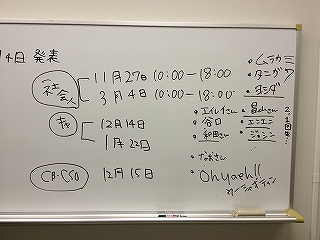 14日 発表
社会人
11月27日 10:00-18:00
3月4日 10:00-18:00
キャ
12月14日
1月22日
CB・CSO
12月15日
・ムラカミ
・タニガワ
・ヨシダ
・エイレイさん
・谷口
・和田さん
・畠山さん
・エンエン
・ジョジョ
・なおさん
・Ohyaeh!!